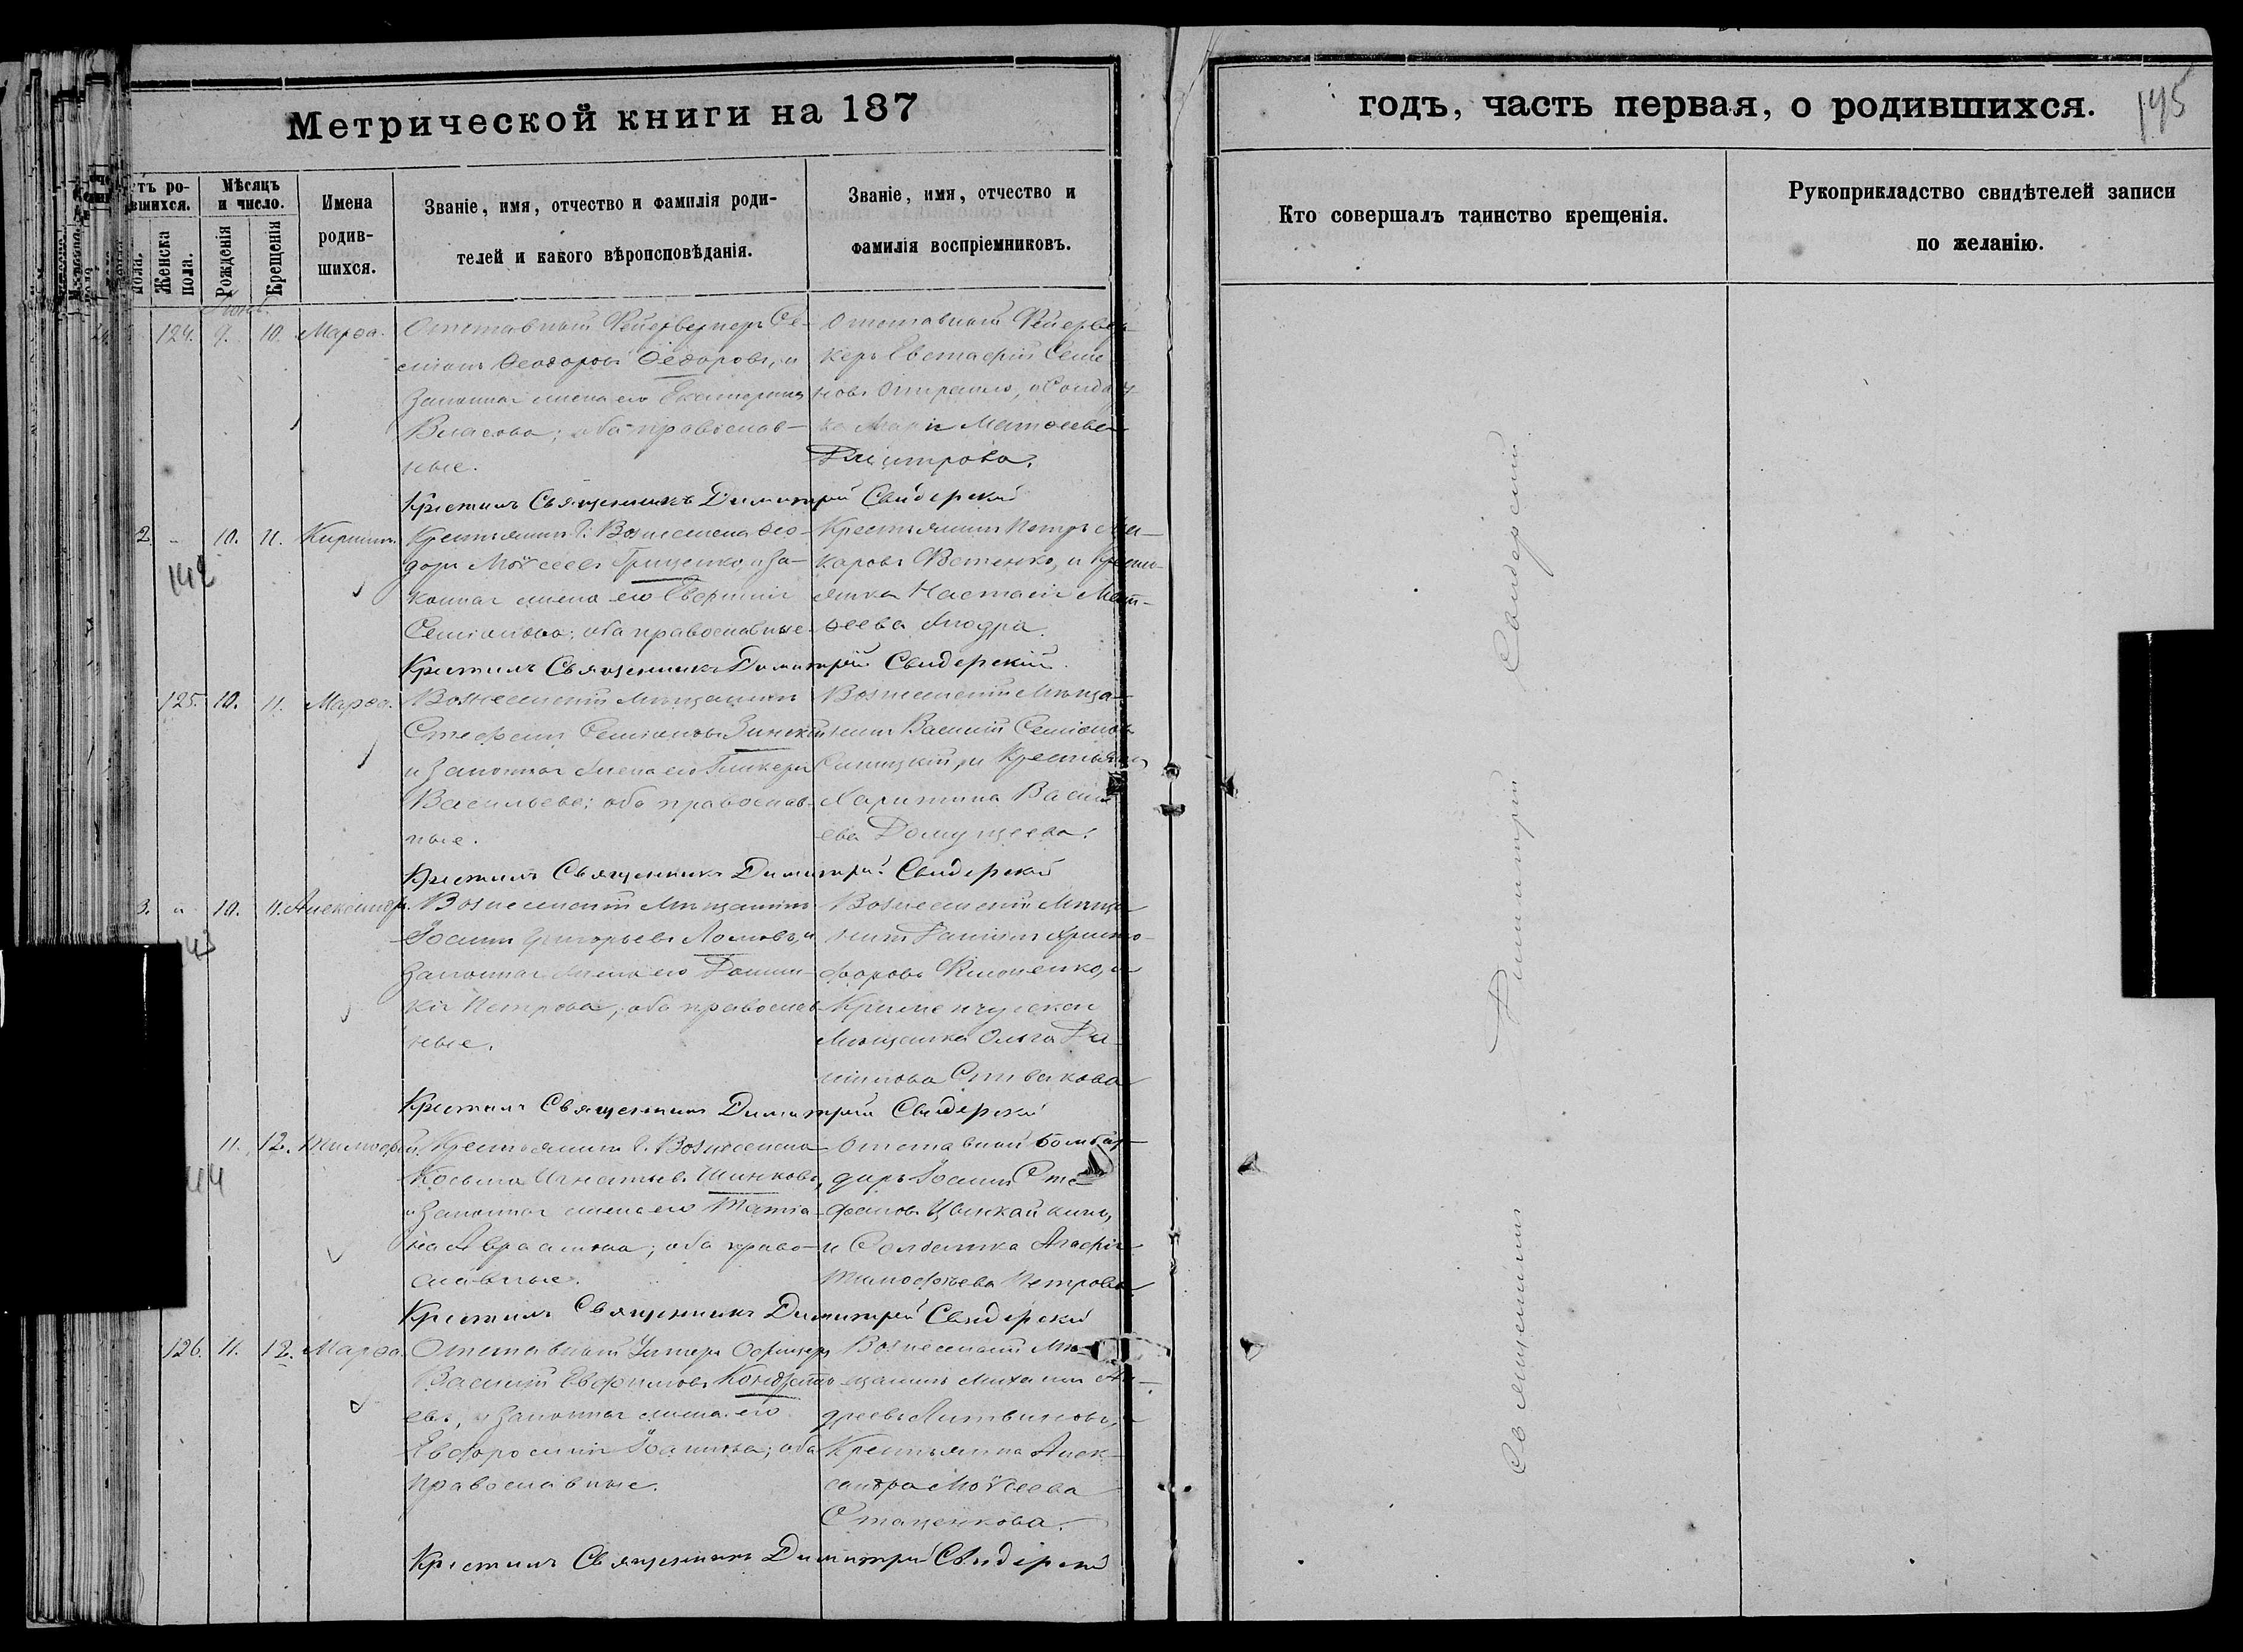 Метрической книги на 187
годъ, часть первая, о родившихся.
195
Мѣсяцъ и число.
Женска пола.
Рожденія
Крещенія
Имена родив-шихся.
Званіе, имя, отчество и фамилія роди-
телей и какого вѣроисповѣданія.
Званіе, имя, отчество и
фамилія воспріемниковъ.
Кто совершалъ таинство крещенія.
Рукоприкладство свидѣтелей записи
по желанію.
124. 9. 10. Марѳа.
Отставный Фейерверкеръ Се-
міонъ Ѳеодоровъ Ѳедоровъ, и
законная жена его Екатерина
Власова; оба православ-
ные.
Отставный Фейервер
керъ Евстафій Семе
новъ, и Солдат-
ка Марія Матѳеева
Димитрова.
Крестилъ Священникъ Димитрій Свидерскій
2. - 10. 11. Кирилъ.
142
Крестьянинъ г. Вознесенска Ѳео-
доръ Моѵсеевъ Грищенко, и за-
конная жена его Евгенія
Семіонова; оба православные.
Крестьянинъ Петръ Ма-
каровъ, и Кресть-
янка Настасія Мат-
ѳеева
Крестилъ Священникъ Димитрій Свидерскій.
125. 10. 11. Марѳа.
Вознесенскій Мѣщанинъ
Стефанъ Семіоновъ Зинскій
и законная жена его Гликерія
Васильева; оба православ-
ные.
Вознесенскій Мѣща-
нинъ Василій Семіоновъ
и Крестьянка
Харитина Василь
ева
Крестилъ Священникъ Димитрій Свидерскій
3. " 10. 11. Александръ.
43
Вознесенскій Мѣщанинъ
Іоаннъ Григорьевъ Ломовъ, и
законная жена его Домни-
кія Петрова; оба православ
ные.
Вознесенскій Мѣща
нинъ Даніилъ Христо-
форовъ, и
Кременчугская
Мѣщанка Ольга Да-
ніилова Спивакова
Крестилъ Священникъ Димитрій Свидерскій
11. 12. Тимоѳей.
44
Крестьянинъ г. Вознесенска
Косьма Игнатьевъ Шинковъ,
и законная жена его Татіа-
на Авраамова; оба право-
славные.
Отставный Бомбар-
диръ Іоаннъ Сте
фановъ
и Солдатка Агафія
Тимофѣева Петрова
Крестилъ Священникъ Димитрій Свидерскій
126. 11. 12. Марѳа.
Отставный Унтеръ Офицеръ
Василій Евфимовъ Кондрать
евъ, и законная жена его
Евфросинія Іоаннова; оба
православные.
Вознесенскій Мѣ-
щанинъ Михаилъ Ан-
дреевъ Литвиновъ, и
Крестьянка Алек-
сандра Моѵсеева
Стаценкова.
Крестилъ Священникъ Димитрій Свидерскій
Священникъ Димитрій Свидерскій